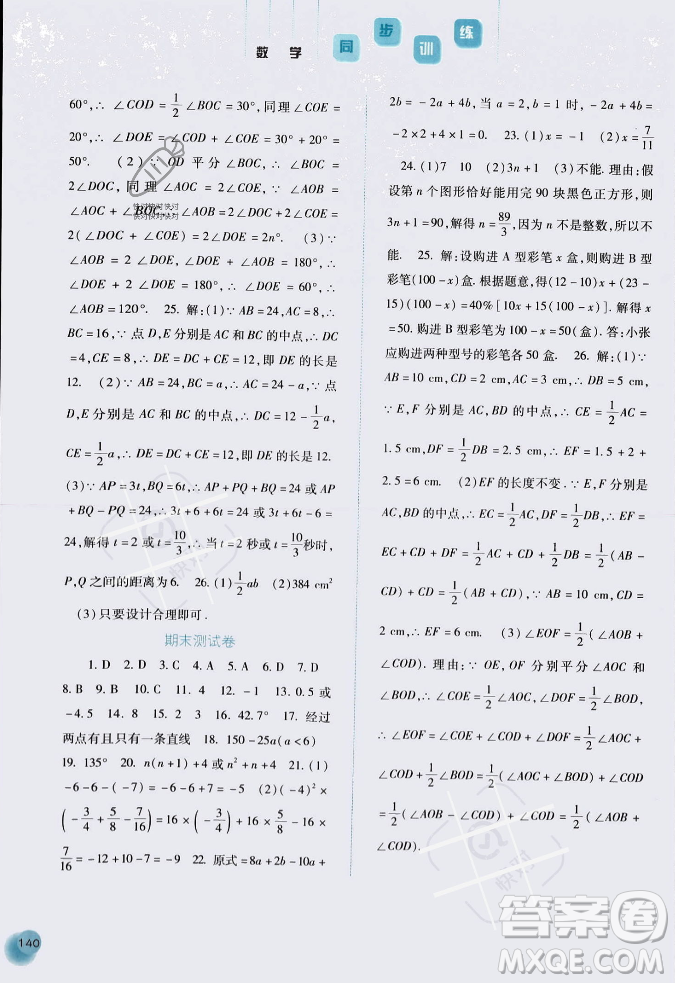 数 学 同 步 训 练
60°,∴ ∠COD = 1/2 ∠BOC = 30°,同理∠COE =
20°,∴ ∠DOE = ∠COD + ∠COE = 30° + 20° =
50°. (2)∵ OD 平分∠BOC,∴ ∠BOC =
2∠DOC,同理∠AOC = 2∠COE ∵ ∠AOB =
∠AOC + ∠BOC,∴ ∠AOB = 2∠DOC + 2∠COE =
2(∠DOC + ∠COE) = 2∠DOE = 2n°. (3)∵
∠AOB = 2 ∠DOE,∠AOB + ∠DOE = 180°,∴
2 ∠DOE + ∠DOE = 180°,∴ ∠DOE = 60°,∴
∠AOB = 120°. 25. 解:(1)∵ AB = 24,AC = 8,∴
BC = 16,∵ 点 D,E 分别是 AC 和 BC 的中点,∴ DC
= 4,CE = 8,∴ DE = DC + CE = 12,即 DE 的长是
12. (2)∵ AB = 24,AC = a,∴ BC = 24 - a,∵ 点
D,E 分别是 AC 和 BC 的中点,∴ DC = 12 - 1/2 a,
CE = 1/2 a,∴ DE = DC + CE = 12,即 DE 的长是 12.
(3)∵ AP = 3t,BQ = 6t,∴ AP + PQ + BQ = 24 或 AP
+ BQ - PQ = 24,∴ 3t + 6 + 6t = 24 或 3t + 6t - 6 =
24,解得 t = 2 或 t = 10/3,∴ 当 t = 2 秒或 t = 10/3 秒时,
P,Q 之间的距离为 6. 26. (1) 1/2 ab (2)384 cm²
(3)只要设计合理即可.
期末测试卷
1. D 2. D 3. C 4. A 5. D 6. D 7. D
8. B 9. B 10. A 11. A 12. -1 13. 0.5 或
-4.5 14. 8 15. 2 3 16. 42.7° 17. 经过
两点有且只有一条直线 18. 150 - 25a(a < 6)
19. 135° 20. n(n + 1)或 n² + n 21. (1)
-6 - 6 - (-7) = -6 - 6 + 7 = -5 (2)(-4)² ×
(-3/4 + 5/8 - 7/16) = 16 × (-3/4) + 16 × 5/8 - 16 ×
7/16 = -12 + 10 - 7 = -9 22. 原式 = 8a + 2b - 10a +
2b = -2a + 4b,当 a = 2,b = 1 时,-2a + 4b =
-2 × 2 + 4 × 1 = 0. 23. (1)x = -1 (2)x = 7/11
24. (1)7 10 (2)3n + 1 (3)不能. 理由:假
设第 n 个图形恰好能用完 90 块黑色正方形,则
3n + 1 = 90,解得 n = 89/3,因为 n 不是整数,所以不
能. 25. 解:设购进 A 型彩笔 x 盒,则购进 B 型
彩笔(100 - x)盒. 根据题意,得(12 - 10)x + (23 -
15)(100 - x) = 40%[10x + 15(100 - x)]. 解得 x
= 50. 购进 B 型彩笔为 100 - x = 50(盒). 答:小张
应购进两种型号的彩笔各 50 盒. 26. 解:(1)∵
AB = 10 cm,CD = 2 cm,AC = 3 cm,∴ DB = 5 cm,
∵ E,F 分别是 AC,BD 的中点,∴ CE = 1/2 AC =
1.5 cm,DF = 1/2 DB = 2.5 cm,∴ EF = 1.5 + 2 +
2.5 = 6 cm. (2)EF 的长度不变. ∵ E,F 分别是
AC,BD 的中点,∴ EC = 1/2 AC,DF = 1/2 DB,∴ EF =
EC + CD + DF = 1/2 AC + CD + 1/2 DB = 1/2 (AB -
CD) + CD = 1/2 (AB + CD),∵ AB = 10 cm,CD =
2 cm,∴ EF = 6 cm. (3)∠EOF = 1/2 (∠AOB +
∠COD). 理由:∵ OE,OF 分别平分∠AOC 和
∠BOD,∴ ∠COE = 1/2 ∠AOC,∠DOF = 1/2 ∠BOD,
∴ ∠EOF = ∠COE + ∠COD + ∠DOF = 1/2 ∠AOC +
∠COD + 1/2 ∠BOD = 1/2 (∠AOC + ∠BOD) + ∠COD =
1/2 (∠AOB - ∠COD) + ∠COD = 1/2 (∠AOB +
∠COD).
140
答案圈
MXQE.COM